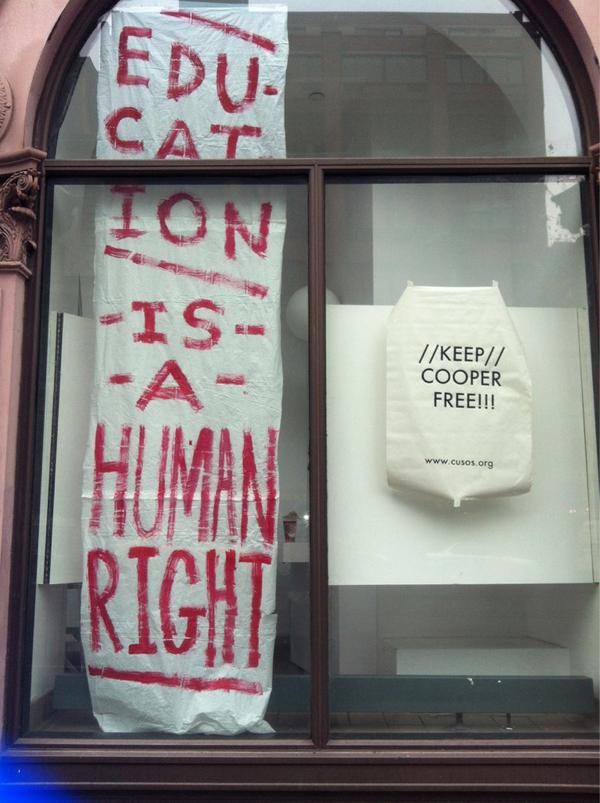 EDU-
CAT
ION
-IS-
-A-
HUMAN
RIGHT
//KEEP//
COOPER
FREE!!!
www.cusos.org